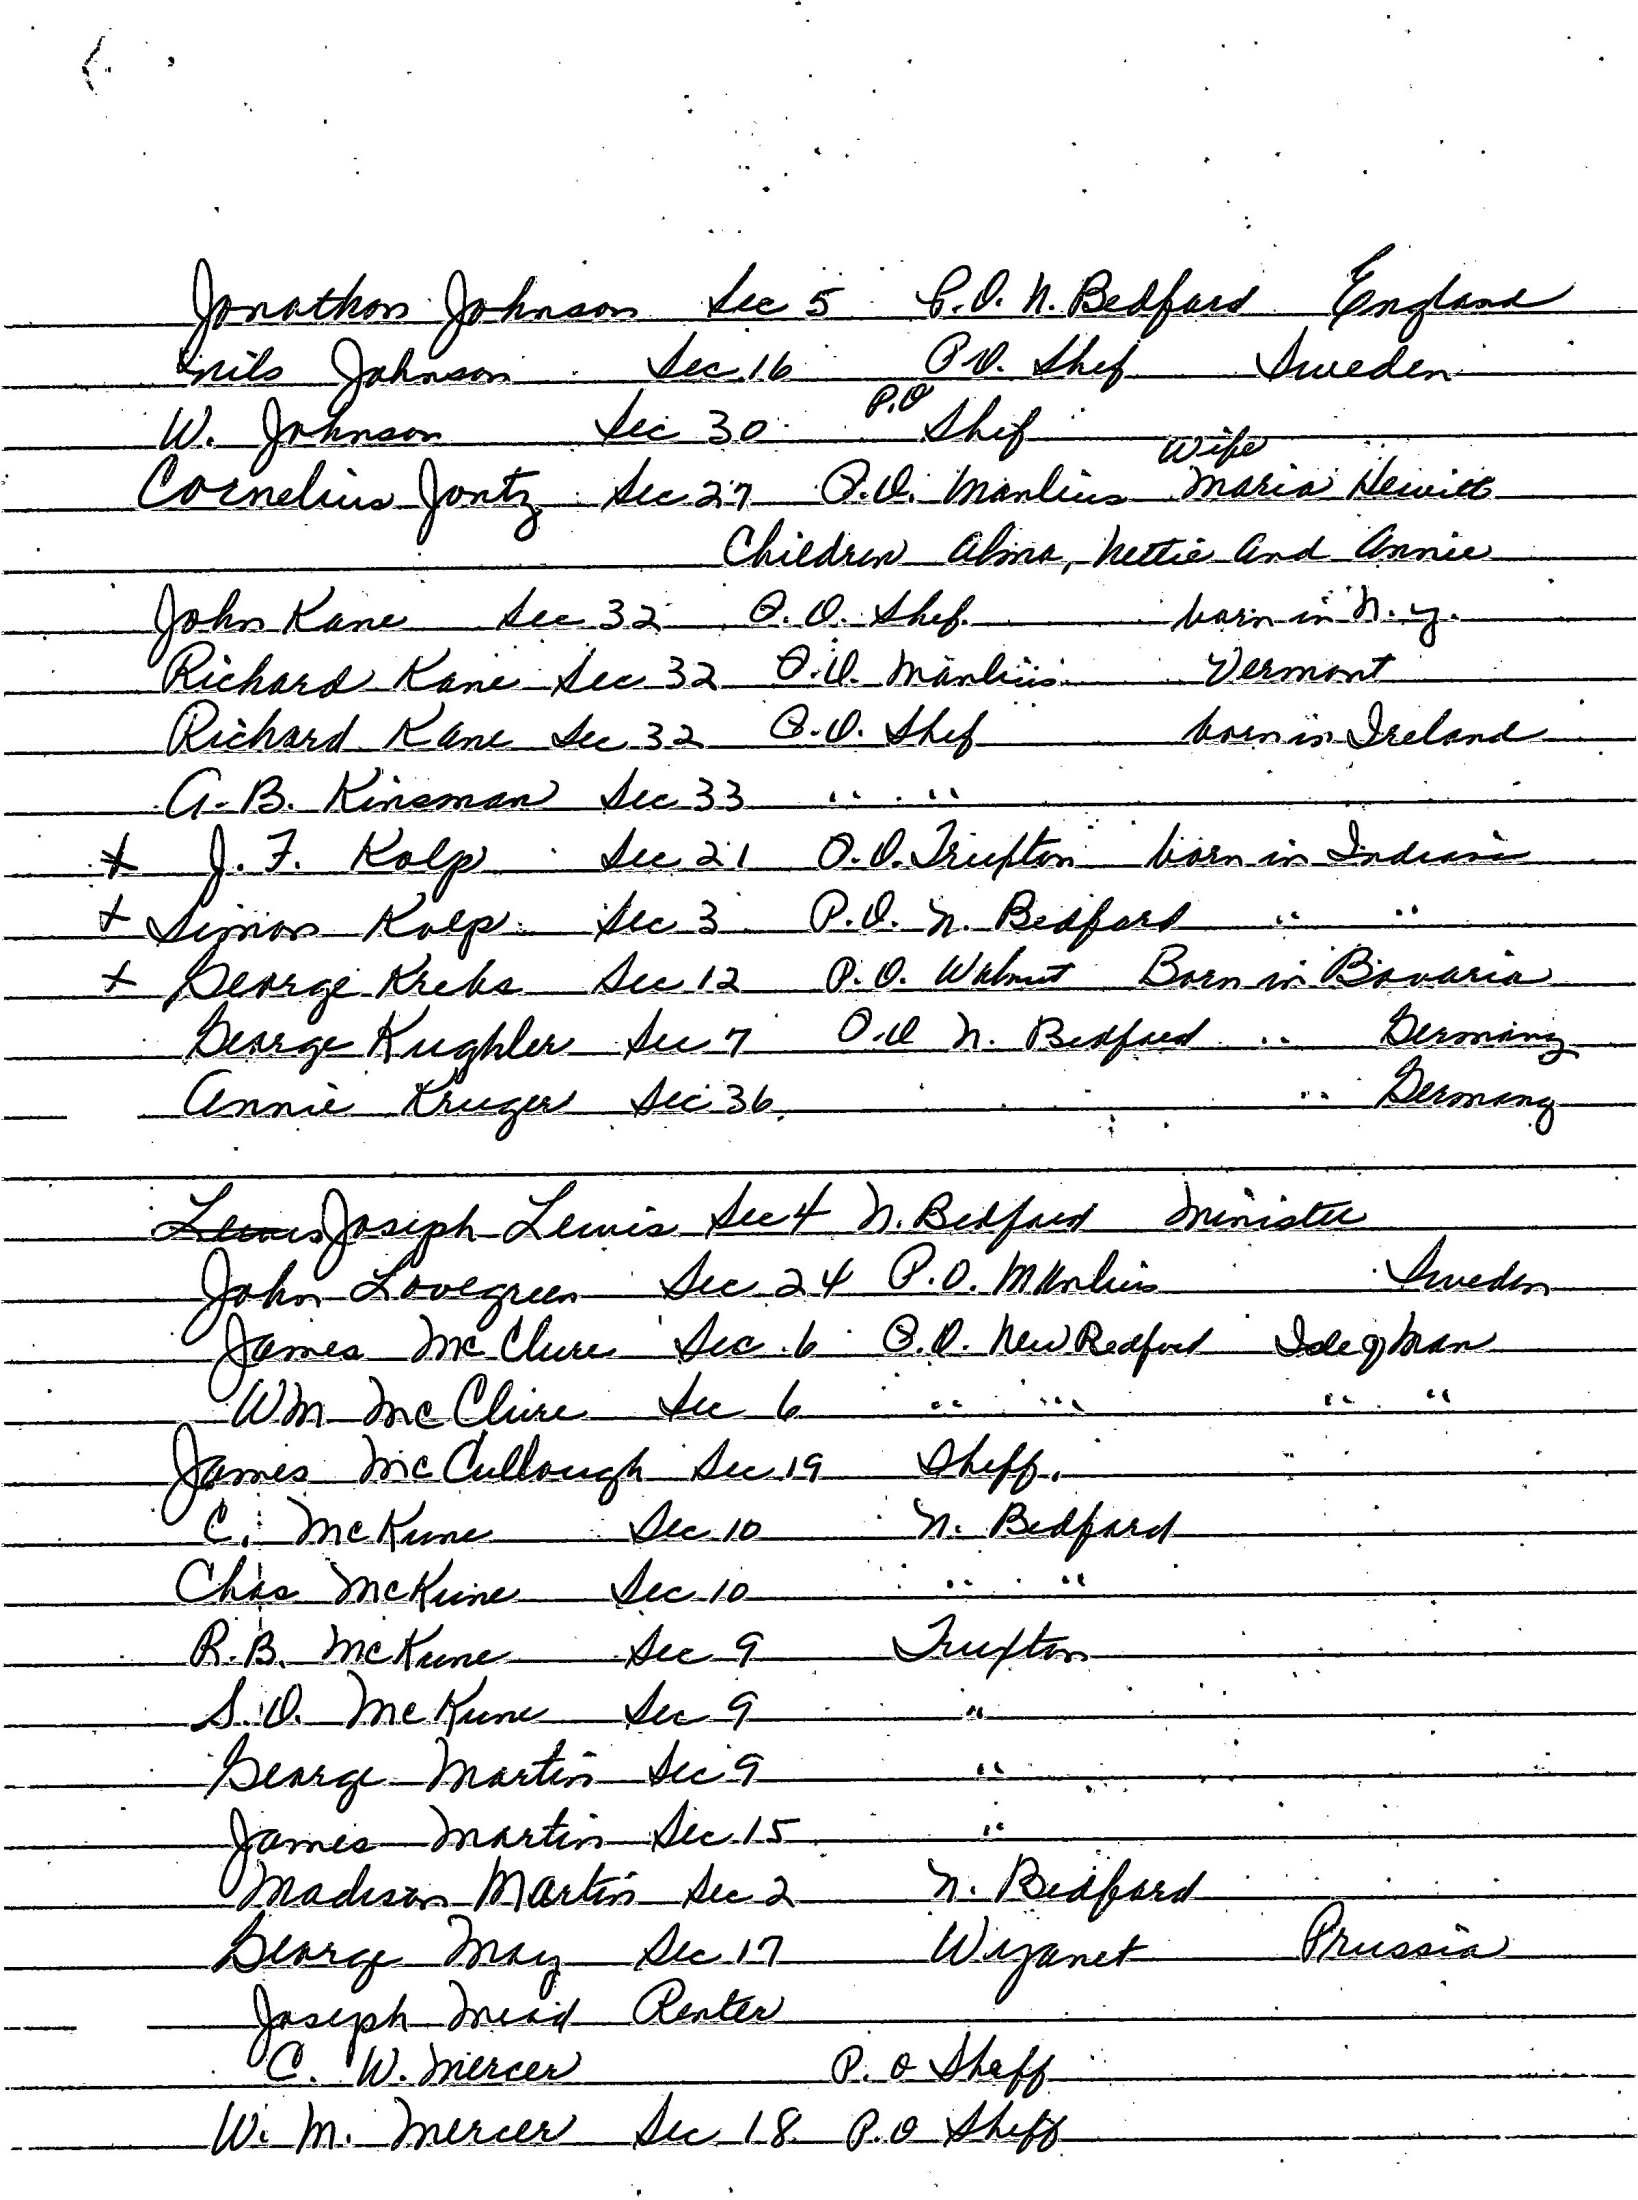 Jonathon Johnson Sec 5 P.O. N. Bedford England
Nils Johnson Sec. 16 P.O. Shef Sweden
W. Johnson Sec 30 P.O Shef
Cornelius Jontz Sec 27 P.O. Manlius Wife Maria Hewitt
Children Alma, Nettie and Annie
John Kane Sec 32 P.O. Shef. born in N.Y.
Richard Kane Sec 32 P.O. Manlius Vermont
Richard Kane Sec 32 P.O. Shef born in Ireland
A. B. Kinsman Sec 33 " "
x J. F. Kolp Sec 21 P.O. Truxton born in Indiana
x Simon Kolp Sec 3 P.O. N. Bedford " "
x George Krebs Sec 12 P.O. Walnut Born in Bavaria
George Kughler Sec 7 P.O N. Bedford " Germany
Annie Kruger Sec 36. " Germany
Lewis Joseph Lewis Sec 4 N. Bedford Minister
John Lovegreen Sec 24 P.O. Manlius Sweden
James McClure Sec. 6 P.O. New Bedford Isle of Man
Wm McClure Sec 6 " " " "
James McCullough Sec 19 Sheff.
C. McKune Sec 10 N. Bedford
Chas McKune Sec 10 " "
R.B. McKune Sec 9 Truxton
S.O. McKune Sec 9 "
George Martin Sec 9 "
James Martin Sec 15 "
Madison Martin Sec 2 N. Bedford
George May Sec 17 Wyanet Prussia
Joseph Mead Renter
C. W. Mercer P.O Sheff
W. M. Mercer Sec 18 P.O Sheff